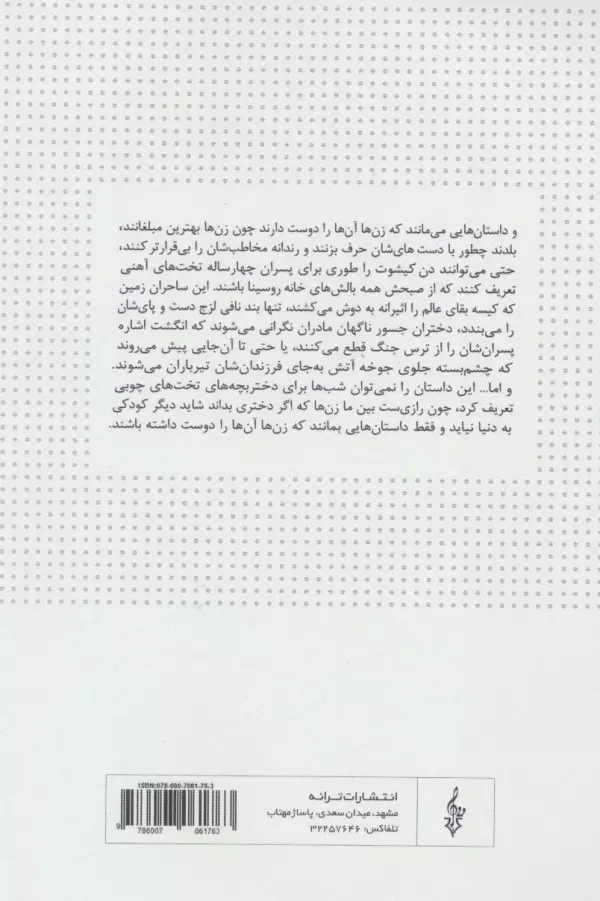 و داستان‌هایی می‌مانند که زن‌ها آن‌ها را دوست دارند چون زن‌ها بهترین مبلغانند،
بلدند چطور با دست های‌شان حرف بزنند و رندانه مخاطب‌شان را بی‌قرارتر کنند،
حتی می‌توانند دن کیشوت را طوری برای پسران چهارساله تخت‌های آهنی
تعریف کنند که از صبحش همه بالش‌های خانه روسینا باشند. این ساحران زمین
که کیسه بقای عالم را اثیرانه به دوش می‌کشند، تنها بند نافی لزج دست و پای‌شان
را می‌بندد، دختران جسور ناگهان مادران نگرانی می‌شوند که انگشت اشاره
پسران‌شان را از ترس جنگ قطع می‌کنند، یا حتی تا آن‌جایی پیش می‌روند
که چشم‌بسته جلوی جوخه آتش به‌جای فرزندان‌شان تیرباران می‌شوند.
و اما... این داستان را نمی‌توان شب‌ها برای دختربچه‌های تخت‌های چوبی
تعریف کرد، چون رازی‌ست بین ما زن‌ها که اگر دختری بداند شاید دیگر کودکی
به دنیا نیاید و فقط داستان‌هایی بمانند که زن‌ها آن‌ها را دوست داشته باشند.
ISBN: 978-600-7061-76-3
9 786007 061763
انتشارات ترانه
مشهد، میدان سعدی، پاساژ مهتاب
تلفاکس: ۳۲۲۵۷۶۴۶